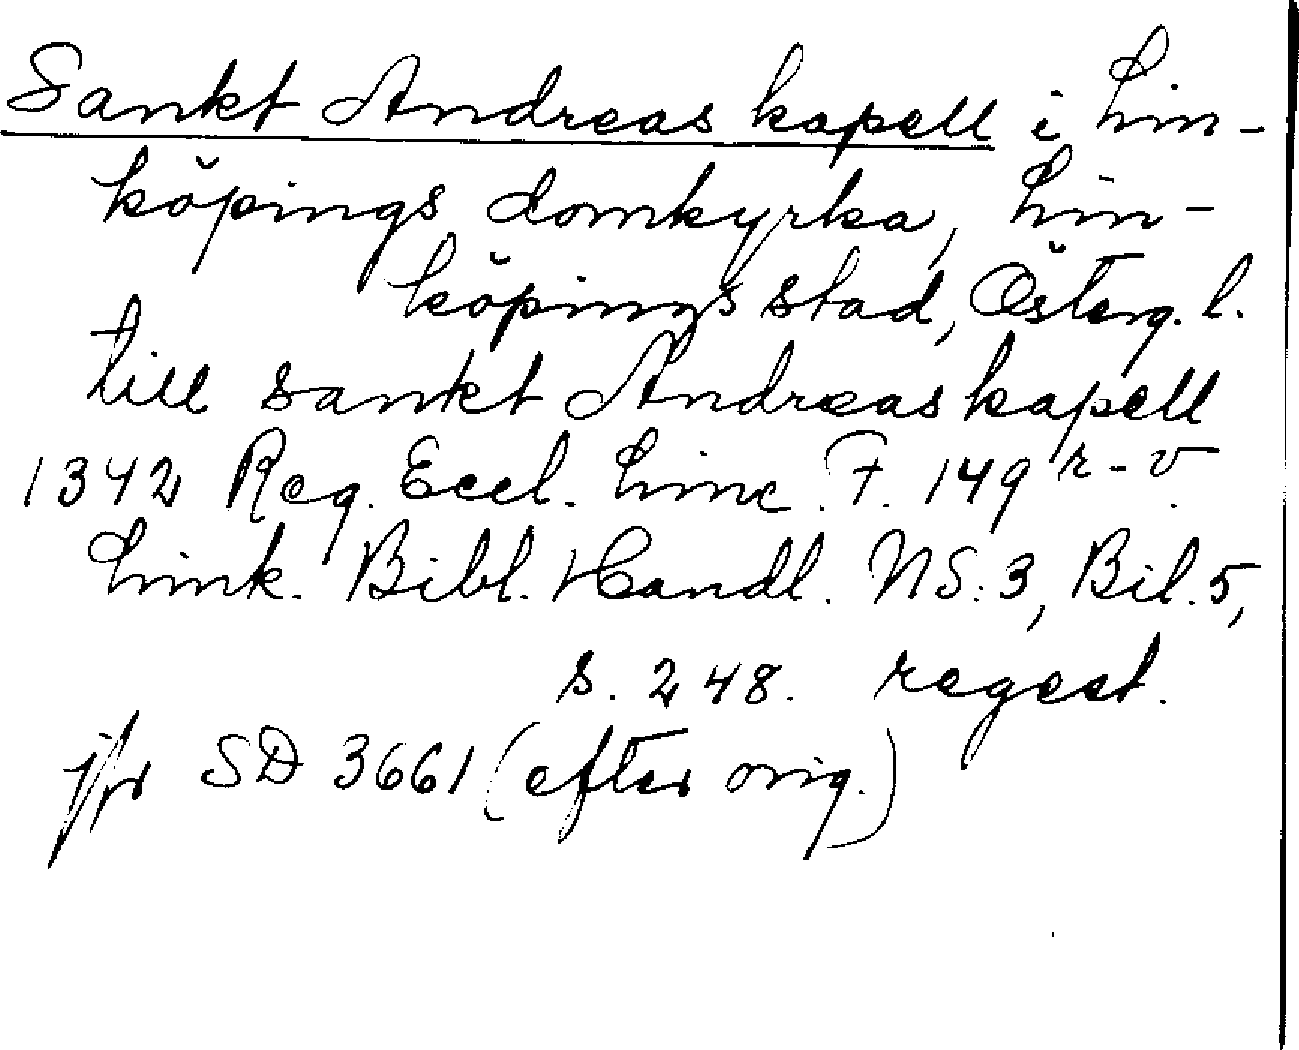 Sankt Andreas kapell i Lin-
köpings domkyrka, Lin-
köpings stad, Österg. l.
till sankt Andreas kapell
1342 Reg. Eccl. Linc. F. 149 r-v.
Link. Bibl. Handl. NS: 3, Bil. 5,
s. 248. regest.
jfr SD 3661 (efter orig.)